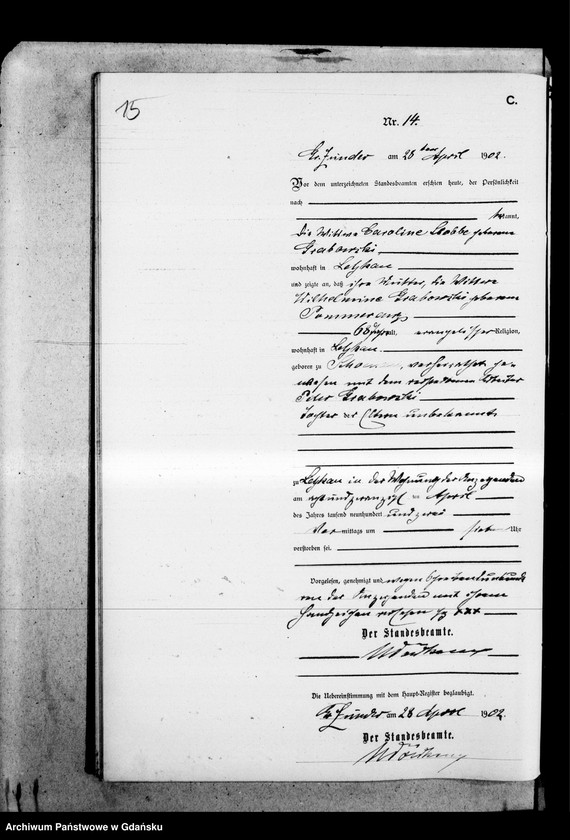 15
C.
Nr. 14.
Gr. Zünder am 28 ten April 1902.
Vor dem unterzeichneten Standesbeamten erschien heute, der Persönlichkeit
nach
bekannt,
die Wittwe Caroline Stobbe geborene
Grabowski
wohnhaft in Letzkau
und zeigte an, daß ihre Mutter, die Wittwe
Wilhelmine Grabowski geborene
68 Jahre alt, evangelischer Religion,
wohnhaft in Letzkau
geboren zu verheirathet ge-
wesen mit dem verstorbenen Arbeiter
Peter Grabowski
Tochter der Eltern unbekannt
zu Letzkau in der Wohnung der Anzeigenden
am achtundzwanzigsten April
des Jahres tausend neunhundert und zwei
Vor mittags um Uhr
verstorben sei.
Vorgelesen, genehmigt und wegen Schreibensunkunde
von der Anzeigenden mit ihrem
Handzeichen versehen +++
Der Standesbeamte.
Die Uebereinstimmung mit dem Haupt-Register beglaubigt.
Gr. Zünder am 28 April 1902.
Der Standesbeamte.
Archiwum Państwowe w Gdańsku